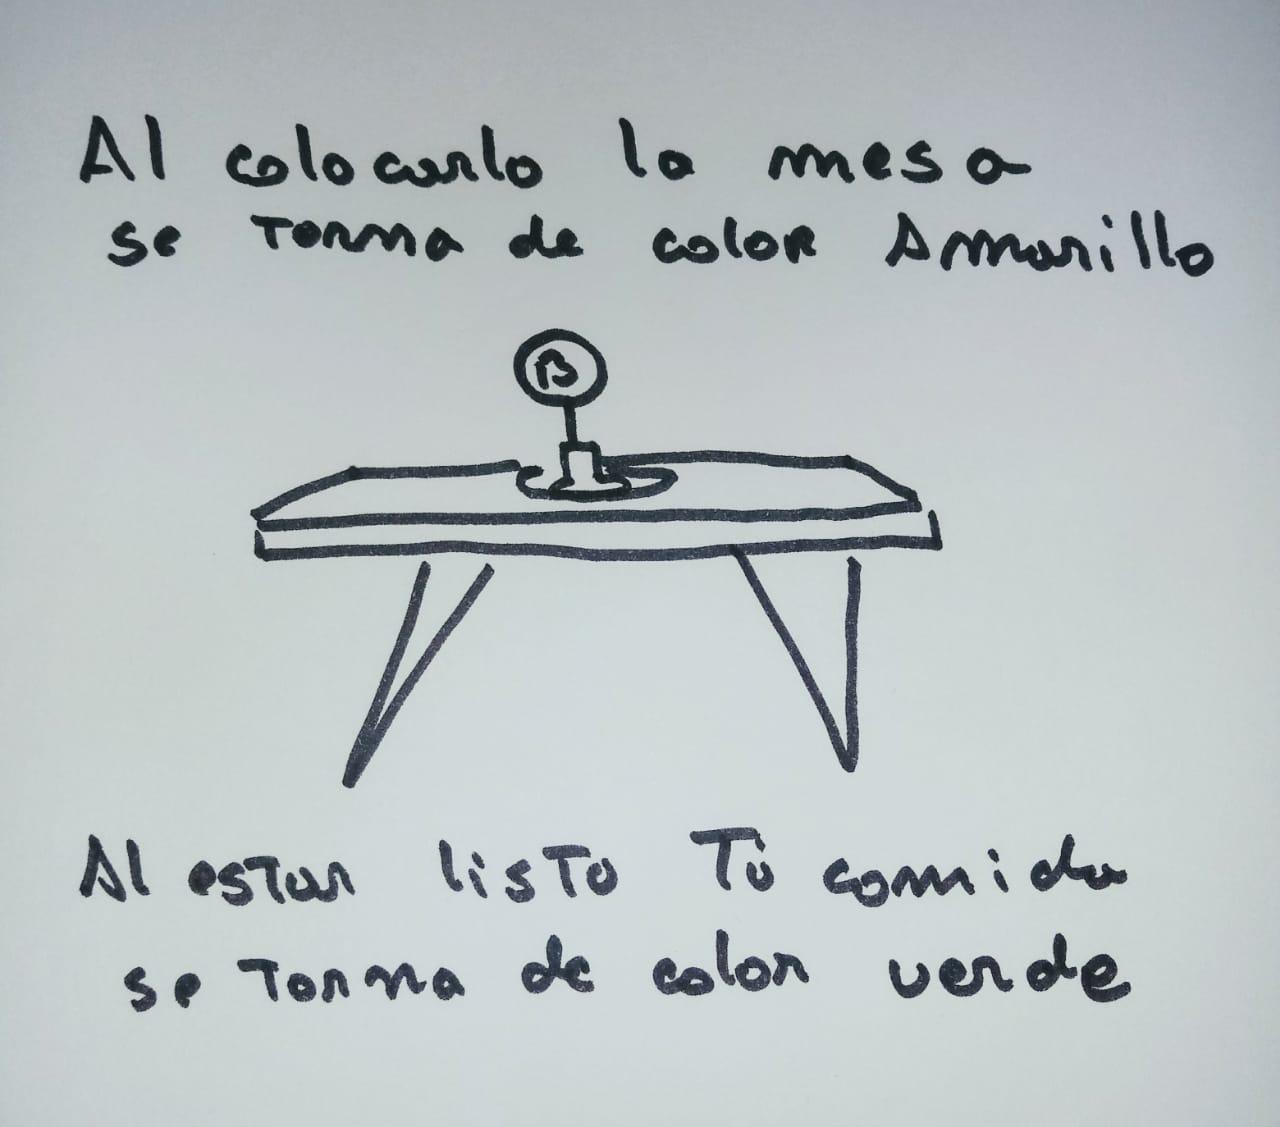 Al colocarlo la mesa
se torna de color Amarillo
B
Al estar listo Tú comida
se torna de color verde